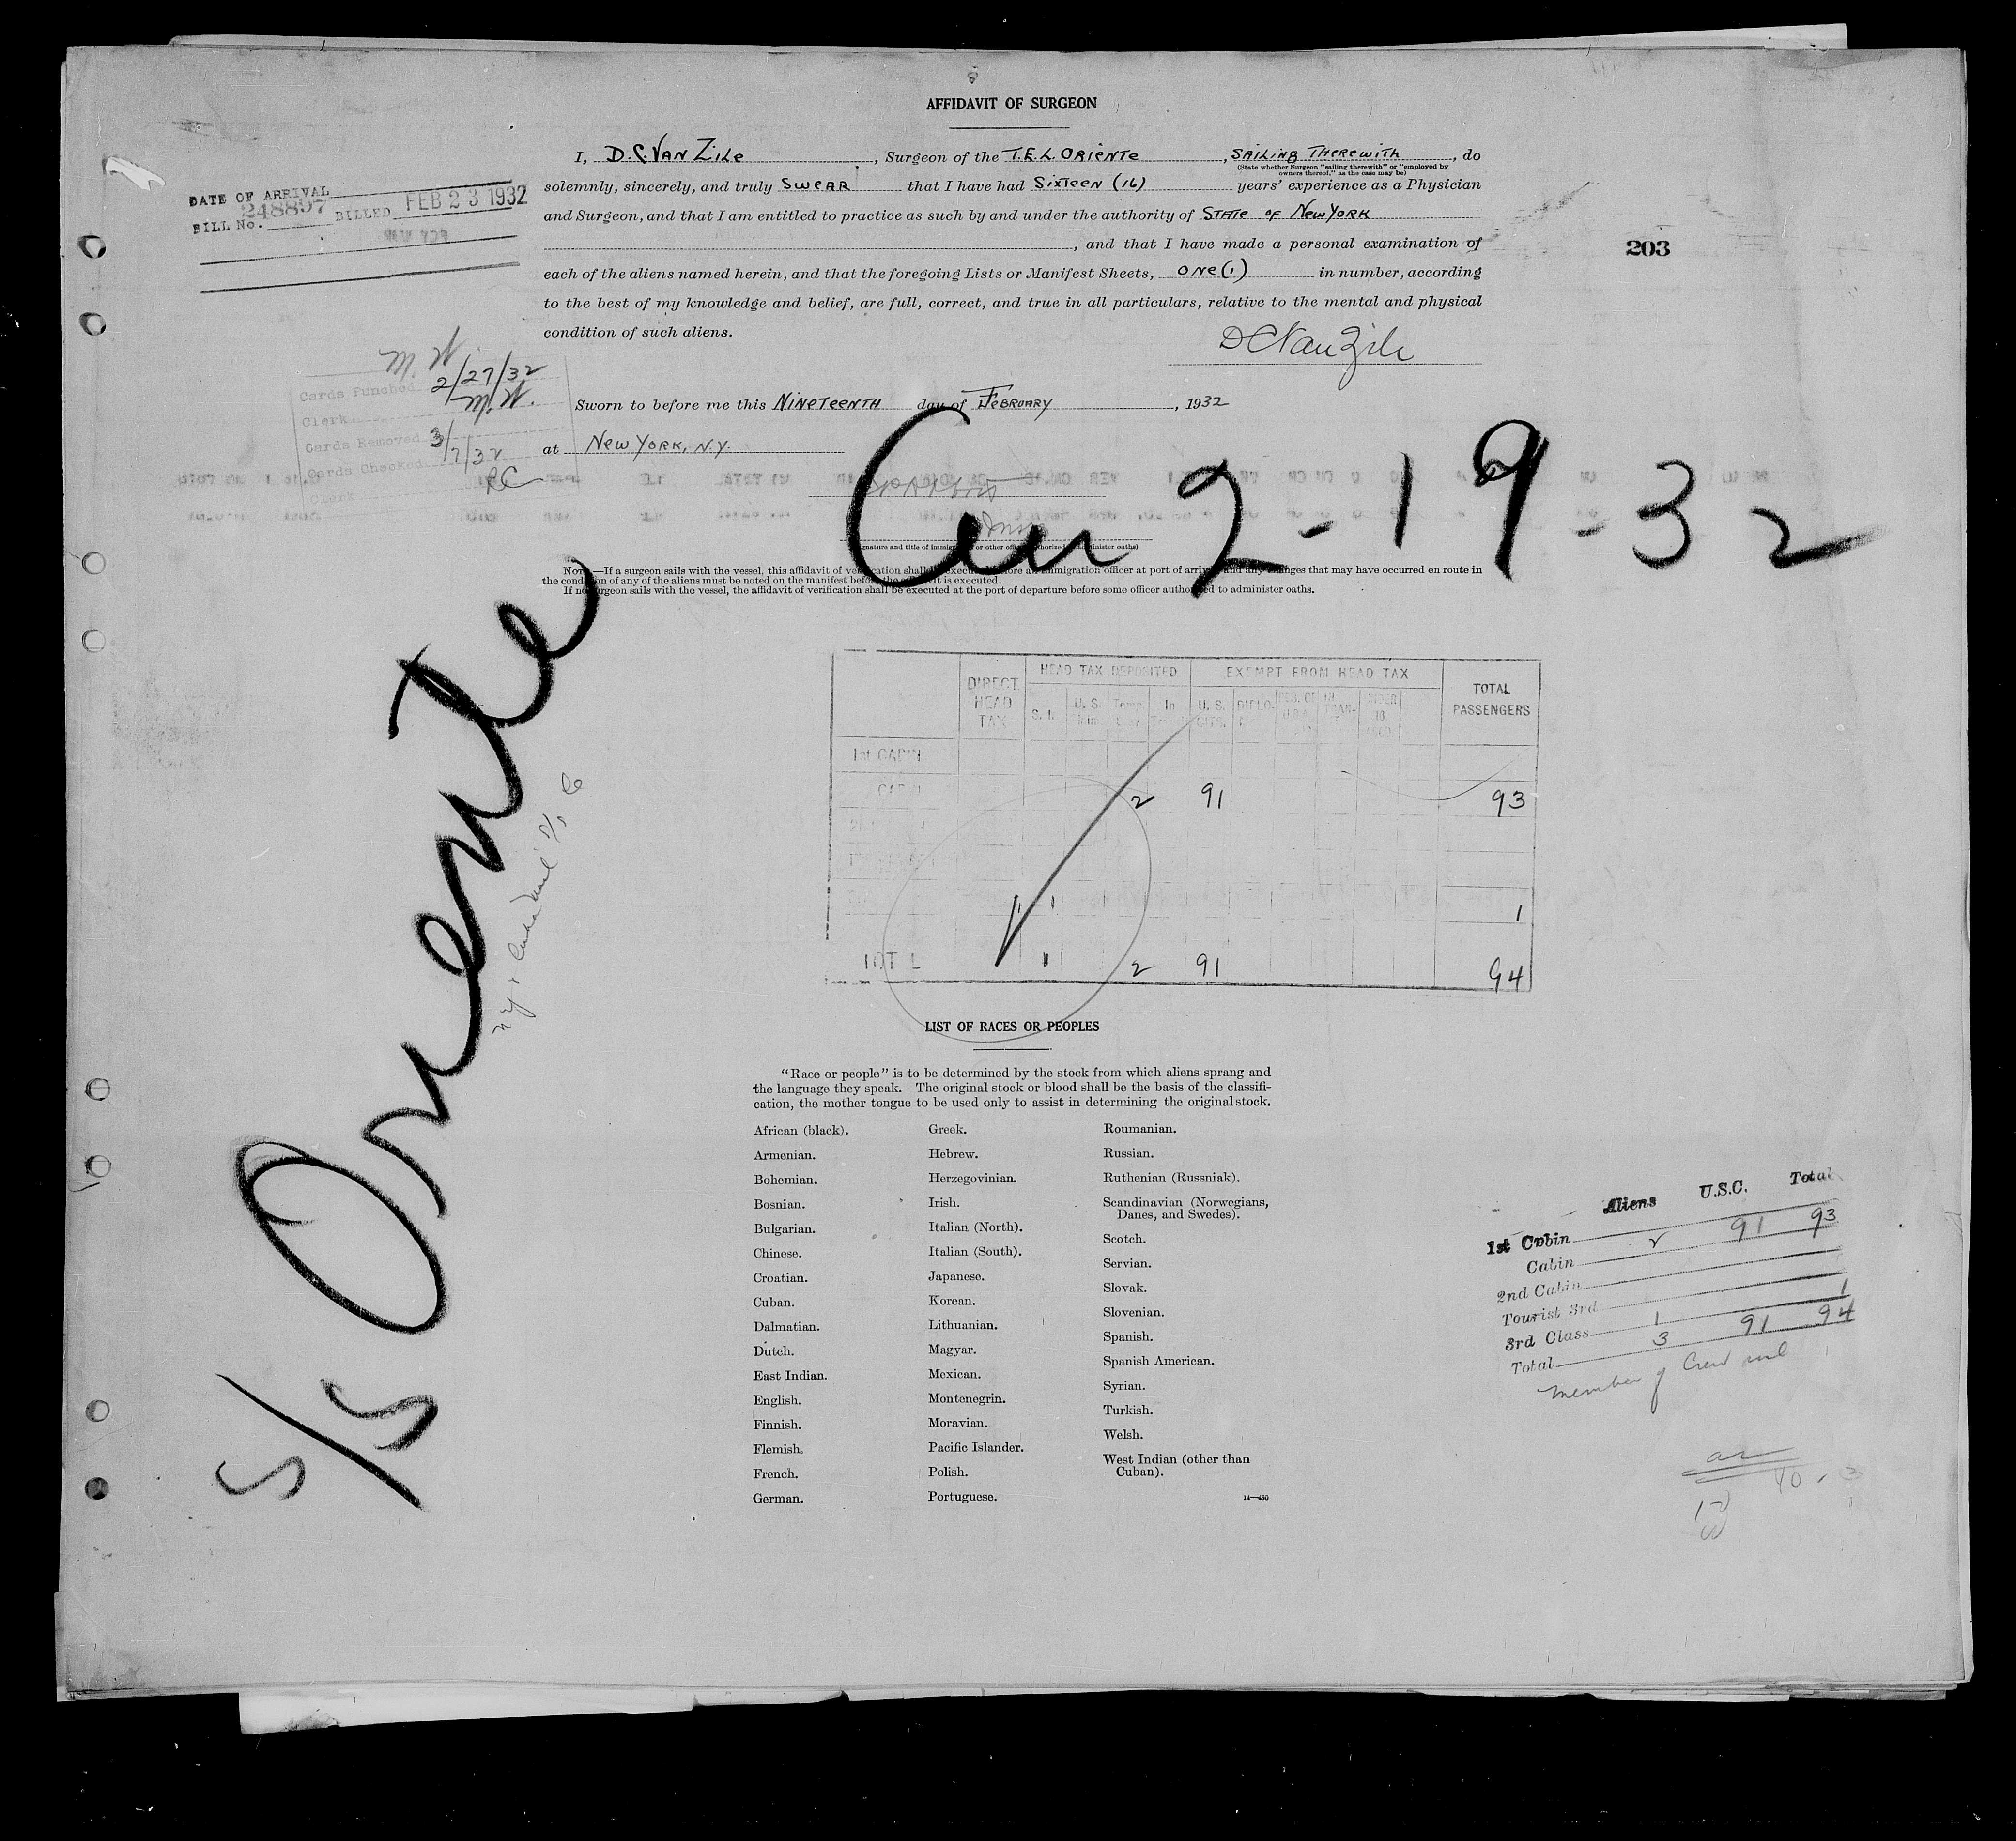 AFFIDAVIT OF SURGEON
I, D.C. VAN ZILE, Surgeon of the T.E.L. ORIENTE, SAILING THEREWITH, do
(State whether Surgeon "sailing therewith" or "employed by
owners thereof," as the case may be)
solemnly, sincerely, and truly SWEAR that I have had SIXTEEN (16) years' experience as a Physician
and Surgeon, and that I am entitled to practice as such by and under the authority of STATE OF NEW YORK
, and that I have made a personal examination of
each of the aliens named herein, and that the foregoing Lists or Manifest Sheets, ONE (1) in number, according
to the best of my knowledge and belief, are full, correct, and true in all particulars, relative to the mental and physical
condition of such aliens.
D C Van Zile
DATE OF ARRIVAL
BILL No. 248897 BILLED FEB 23 1932
203
M. W.
Cards Punched 2/27/32
Clerk M. W.
Cards Removed
Cards Checked 3/7/32
Clerk RC
Sworn to before me this NINETEENTH day of FEBRUARY, 1932
at NEW YORK, N.Y.
2-19-32
S/S Oriente
NOTE.—If a surgeon sails with the vessel, this affidavit of verification shall be executed before an immigration officer at port of arrival, and any changes that may have occurred en route in
the condition of any of the aliens must be noted on the manifest before the affidavit is executed.
If no surgeon sails with the vessel, the affidavit of verification shall be executed at the port of departure before some officer authorized to administer oaths.
DIRECT HEAD TAX HEAD TAX DEPOSITED EXEMPT FROM HEAD TAX TOTAL PASSENGERS
1st CABIN
CABIN 2 91 93
1 1
TOTAL 1 2 91 94
LIST OF RACES OR PEOPLES
"Race or people" is to be determined by the stock from which aliens sprang and
the language they speak. The original stock or blood shall be the basis of the classifi-
cation, the mother tongue to be used only to assist in determining the original stock.
African (black).
Armenian.
Bohemian.
Bosnian.
Bulgarian.
Chinese.
Croatian.
Cuban.
Dalmatian.
Dutch.
East Indian.
English.
Finnish.
Flemish.
French.
German.
Greek.
Hebrew.
Herzegovinian.
Irish.
Italian (North).
Italian (South).
Japanese.
Korean.
Lithuanian.
Magyar.
Mexican.
Montenegrin.
Moravian.
Pacific Islander.
Polish.
Portuguese.
Roumanian.
Russian.
Ruthenian (Russniak).
Scandinavian (Norwegians,
Danes, and Swedes).
Scotch.
Servian.
Slovak.
Slovenian.
Spanish.
Spanish American.
Syrian.
Turkish.
Welsh.
West Indian (other than
Cuban).
14—430
Aliens U.S.C. Total
1st Cabin 2 91 93
Cabin
2nd Cabin
Tourist 3rd
3rd Class 1 1
Total 3 91 94
Member of Crew